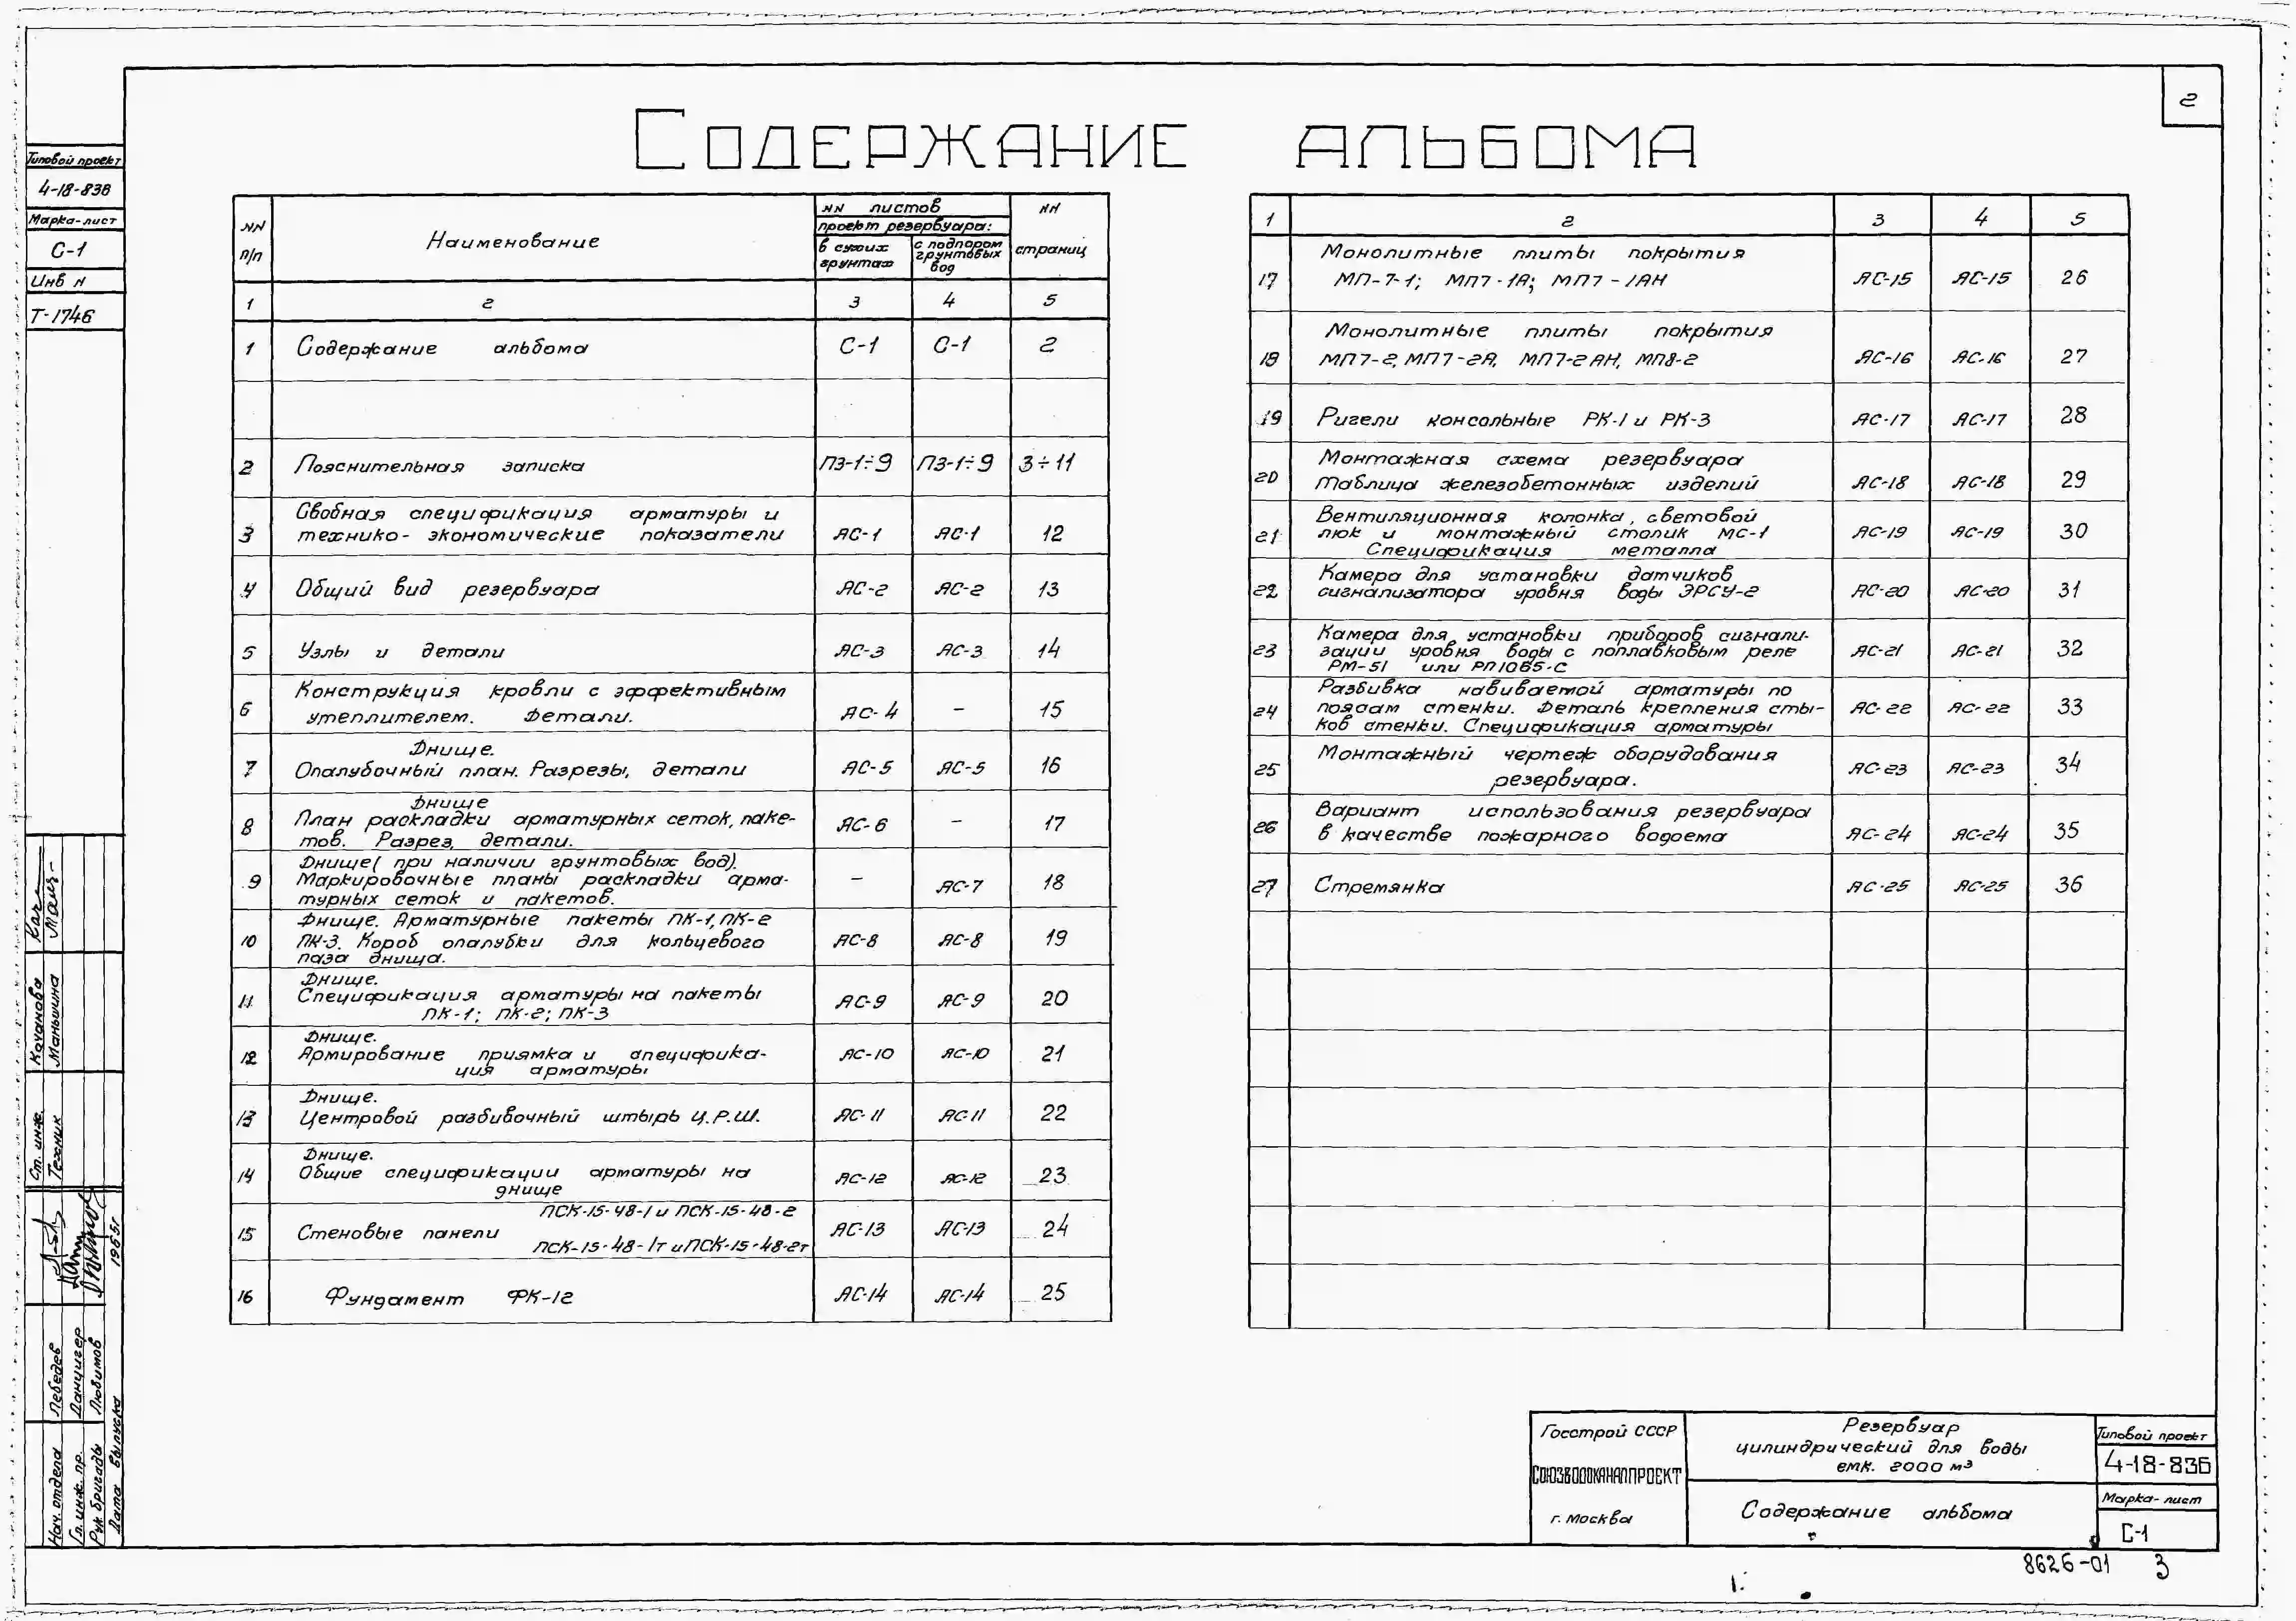 2
Содержание альбома
Типовой проект
4-18-836
Марка-лист
С-1
Инв N
Т-1746
NN п/п
Наименование
NN листов
проект резервуара:
в сухих грунтах
с подпором грунтовых вод
NN страниц
1 2 3 4 5
1 Содержание альбома С-1 С-1 2
2 Пояснительная записка ПЗ-1÷9 ПЗ-1÷9 3÷11
Сводная спецификация арматуры и
3 технико-экономические показатели АС-1 АС-1 12
4 Общий вид резервуара АС-2 АС-2 13
5 Узлы и детали АС-3 АС-3 14
Конструкция кровли с эффективным
6 утеплителем. Детали. АС-4 - 15
Днище.
7 Опалубочный план. Разрезы, детали АС-5 АС-5 16
Днище
8 План раскладки арматурных сеток, паке- АС-6 - 17
тов. Разрез, детали.
Днище (при наличии грунтовых вод).
9 Маркировочные планы раскладки арма- - АС-7 18
турных сеток и пакетов.
Днище. Арматурные пакеты ПК-1, ПК-2
10 ПК-3. Короб опалубки для кольцевого АС-8 АС-8 19
паза днища.
Днище.
11 Спецификация арматуры на пакеты АС-9 АС-9 20
ПК-1; ПК-2; ПК-3
Днище.
12 Армирование приямка и специфика- АС-10 АС-10 21
ция арматуры
Днище.
13 Центровой разбивочный штырь Ц.Р.Ш. АС-11 АС-11 22
Днище.
14 Общие спецификации арматуры на АС-12 АС-12 23
днище
ПСК-15-48-1 и ПСК-15-48-2
15 Стеновые панели АС-13 АС-13 24
ПСК-15-48-1т и ПСК-15-48-2т
16 Фундамент ФК-12 АС-14 АС-14 25
1 2 3 4 5
Монолитные плиты покрытия
17 МП-7-1; МП7-1А; МП7-1АН АС-15 АС-15 26
Монолитные плиты покрытия
18 МП7-2, МП7-2А, МП7-2АН, МП8-2 АС-16 АС-16 27
19 Ригели консольные РК-1 и РК-3 АС-17 АС-17 28
Монтажная схема резервуара
20 таблица железобетонных изделий АС-18 АС-18 29
Вентиляционная колонка, световой
21 люк и монтажный столик МС-1 АС-19 АС-19 30
Спецификация металла
Камера для установки датчиков
22 сигнализатора уровня воды ЭРСУ-2 АС-20 АС-20 31
Камера для установки приборов сигнали-
23 зации уровня воды с поплавковым реле АС-21 АС-21 32
РМ-51 или РП1065-С
Разбивка навиваемой арматуры по
24 поясам стенки. Деталь крепления сты- АС-22 АС-22 33
ков стенки. Спецификация арматуры
Монтажный чертеж оборудования
25 резервуара. АС-23 АС-23 34
Вариант использования резервуара
26 в качестве пожарного водоема АС-24 АС-24 35
27 Стремянка АС-25 АС-25 36
Ст. инж. Качанова
Техник Маньшина
Нач. отдела Лебедев
Гл. инж. пр. Данцигер
Рук. бригады Любимов
Дата выпуска 1965г
Госстрой СССР
СОЮЗВОДОКАНАЛПРОЕКТ
г. Москва
Резервуар
цилиндрический для воды
емк. 2000 м³
Содержание альбома
Типовой проект
4-18-836
Марка-лист
С-1
8626-01 3